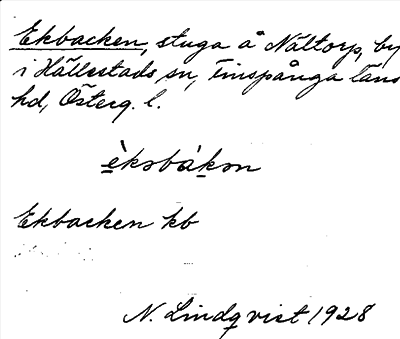 Ekbacken, stuga å Nältorp, by
i Hällestads sn, Finspånga läns
hd, Österg. l.
è̱ksbáḵən
Ekbacken kb
N. Lindqvist 1928